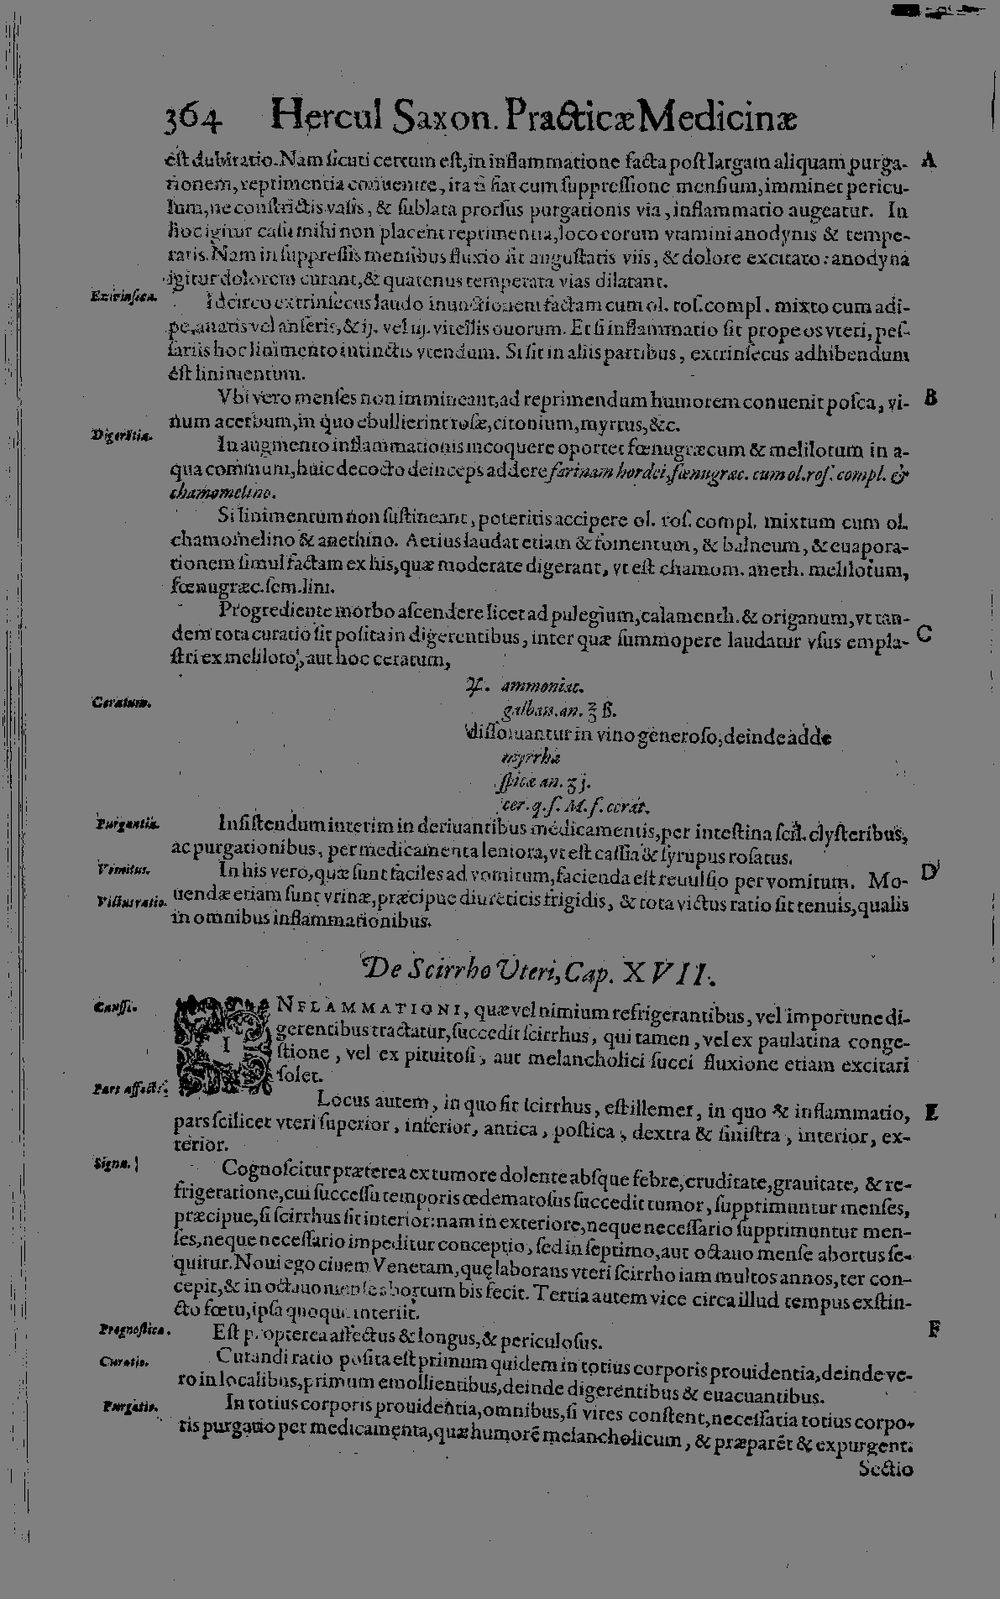 364 Hercul Saxon. Practicæ Medicinæ
est dubitatio. Nam sicuti certum est, in inflammatione facta post largam aliquam purga- A
tionem, reprimentia conuenire, ita si fiat cum suppressione mensium, imminet pericu-
lum, ne constrictis vasis, & sublata prorsus purgationis via, inflammatio augeatur. In
hoc igitur casu mihi non placent reprimentia, loco eorum vtamini anodynis & tempe-
ratis. Nam in suppressis mensibus fluxio fit angustatis viis, & dolore excitato: anodyna
igitur dolorem curant, & quatenus temperata vias dilatant.
Extrinseca. Idcirco extrinsecus laudo inunctionem factam cum ol. ros. compl. mixto cum adi-
pe, anatis vel anseris, & ij. vel iij. vitellis ouorum. Et si inflammatio sit prope os vteri, pes-
sariis hoc linimento intinctis vtendum. Si sit in aliis partibus, extrinsecus adhibendum
est linimentum.
Vbi vero menses non immineant, ad reprimendum humorem conuenit posca, vi- B
num acerbum, in quo ebullierint rosæ, citonium, myrtus, &c.
Digerētia. In augmento inflammationis incoquere oportet fœnugræcum & melilotum in a-
qua communi, huic decocto deinceps addere farinam hordei, fœnugræc. cum ol. ros. compl. &
chamomelino.
Si linimentum non sustineant, poteritis accipere ol. ros. compl. mixtum cum ol.
chamomelino & anethino. Aetius laudat etiam & fomentum, & balneum, & euapora-
tionem simul factam ex his, quæ moderate digerant, vt est chamom. aneth. melilotum,
fœnugræc. sem. lini.
Progrediente morbo ascendere licet ad pulegium, calamenth. & origanum, vt tan-
dem tota curatio sit posita in digerentibus, inter quæ summopere laudatur vsus empla- C
stri ex meliloto, aut hoc ceratum,
Ceratum. ℞. ammoniac.
galban. an. ʒ ß.
dissoluantur in vino generoso, deinde adde
myrrhæ
spicæ an. ʒ j.
cer. q. s. M. f. cerat.
Purgantia. Insistendum interim in deriuantibus medicamentis, per intestina scil. clysteribus,
ac purgationibus, per medicamenta leniora, vt est cassia & syrupus rosatus.
Vomitus. In his vero, quæ sunt faciles ad vomitum, facienda est reuulsio per vomitum. Mo- D
Victus ratio. uendæ etiam sunt vrinæ, præcipue diureticis frigidis, & tota victus ratio sit tenuis, qualis
in omnibus inflammationibus.
De Scirrho Vteri, Cap. XVII.
Caussæ. INFLAMMATIONI, quæ vel nimium refrigerantibus, vel importune di-
gerentibus tractatur, succedit scirrhus, qui tamen, vel ex paulatina conge-
stione, vel ex pituitosi, aut melancholici succi fluxione etiam excitari
solet.
Pars affecta. Locus autem, in quo fit scirrhus, est illemet, in quo & inflammatio, E
pars scilicet vteri superior, inferior, antica, postica, dextra & sinistra, interior, ex-
terior.
Signa. Cognoscitur præterea ex tumore dolente absque febre, cruditate, grauitate, & re-
frigeratione, cui successu temporis œdematosus succedit tumor, supprimuntur menses,
præcipue, si scirrhus sit interior: nam in exteriore, neque necessario supprimuntur men-
ses, neque necessario impeditur conceptio, sed in septimo, aut octauo mense abortus se-
quitur. Noui ego ciuem Venetam, quę laborans vteri scirrho iam multos annos, ter con-
cepit, & in octauo mense abortum bis fecit. Tertia autem vice circa illud tempus exstin-
cto fœtu, ipsa quoque interiit.
Prognostica. Est propterea affectus & longus, & periculosus. F
Curatio. Curandi ratio posita est primum quidem in totius corporis prouidentia, deinde ve-
ro in localibus, primum emollientibus, deinde digerentibus & euacuantibus.
Purgatio. In totius corporis prouidentia, omnibus, si vires constent, necessaria totius corpo-
ris purgatio per medicamenta, quæ humorē melancholicum, & præparēt & expurgent.
Sectio